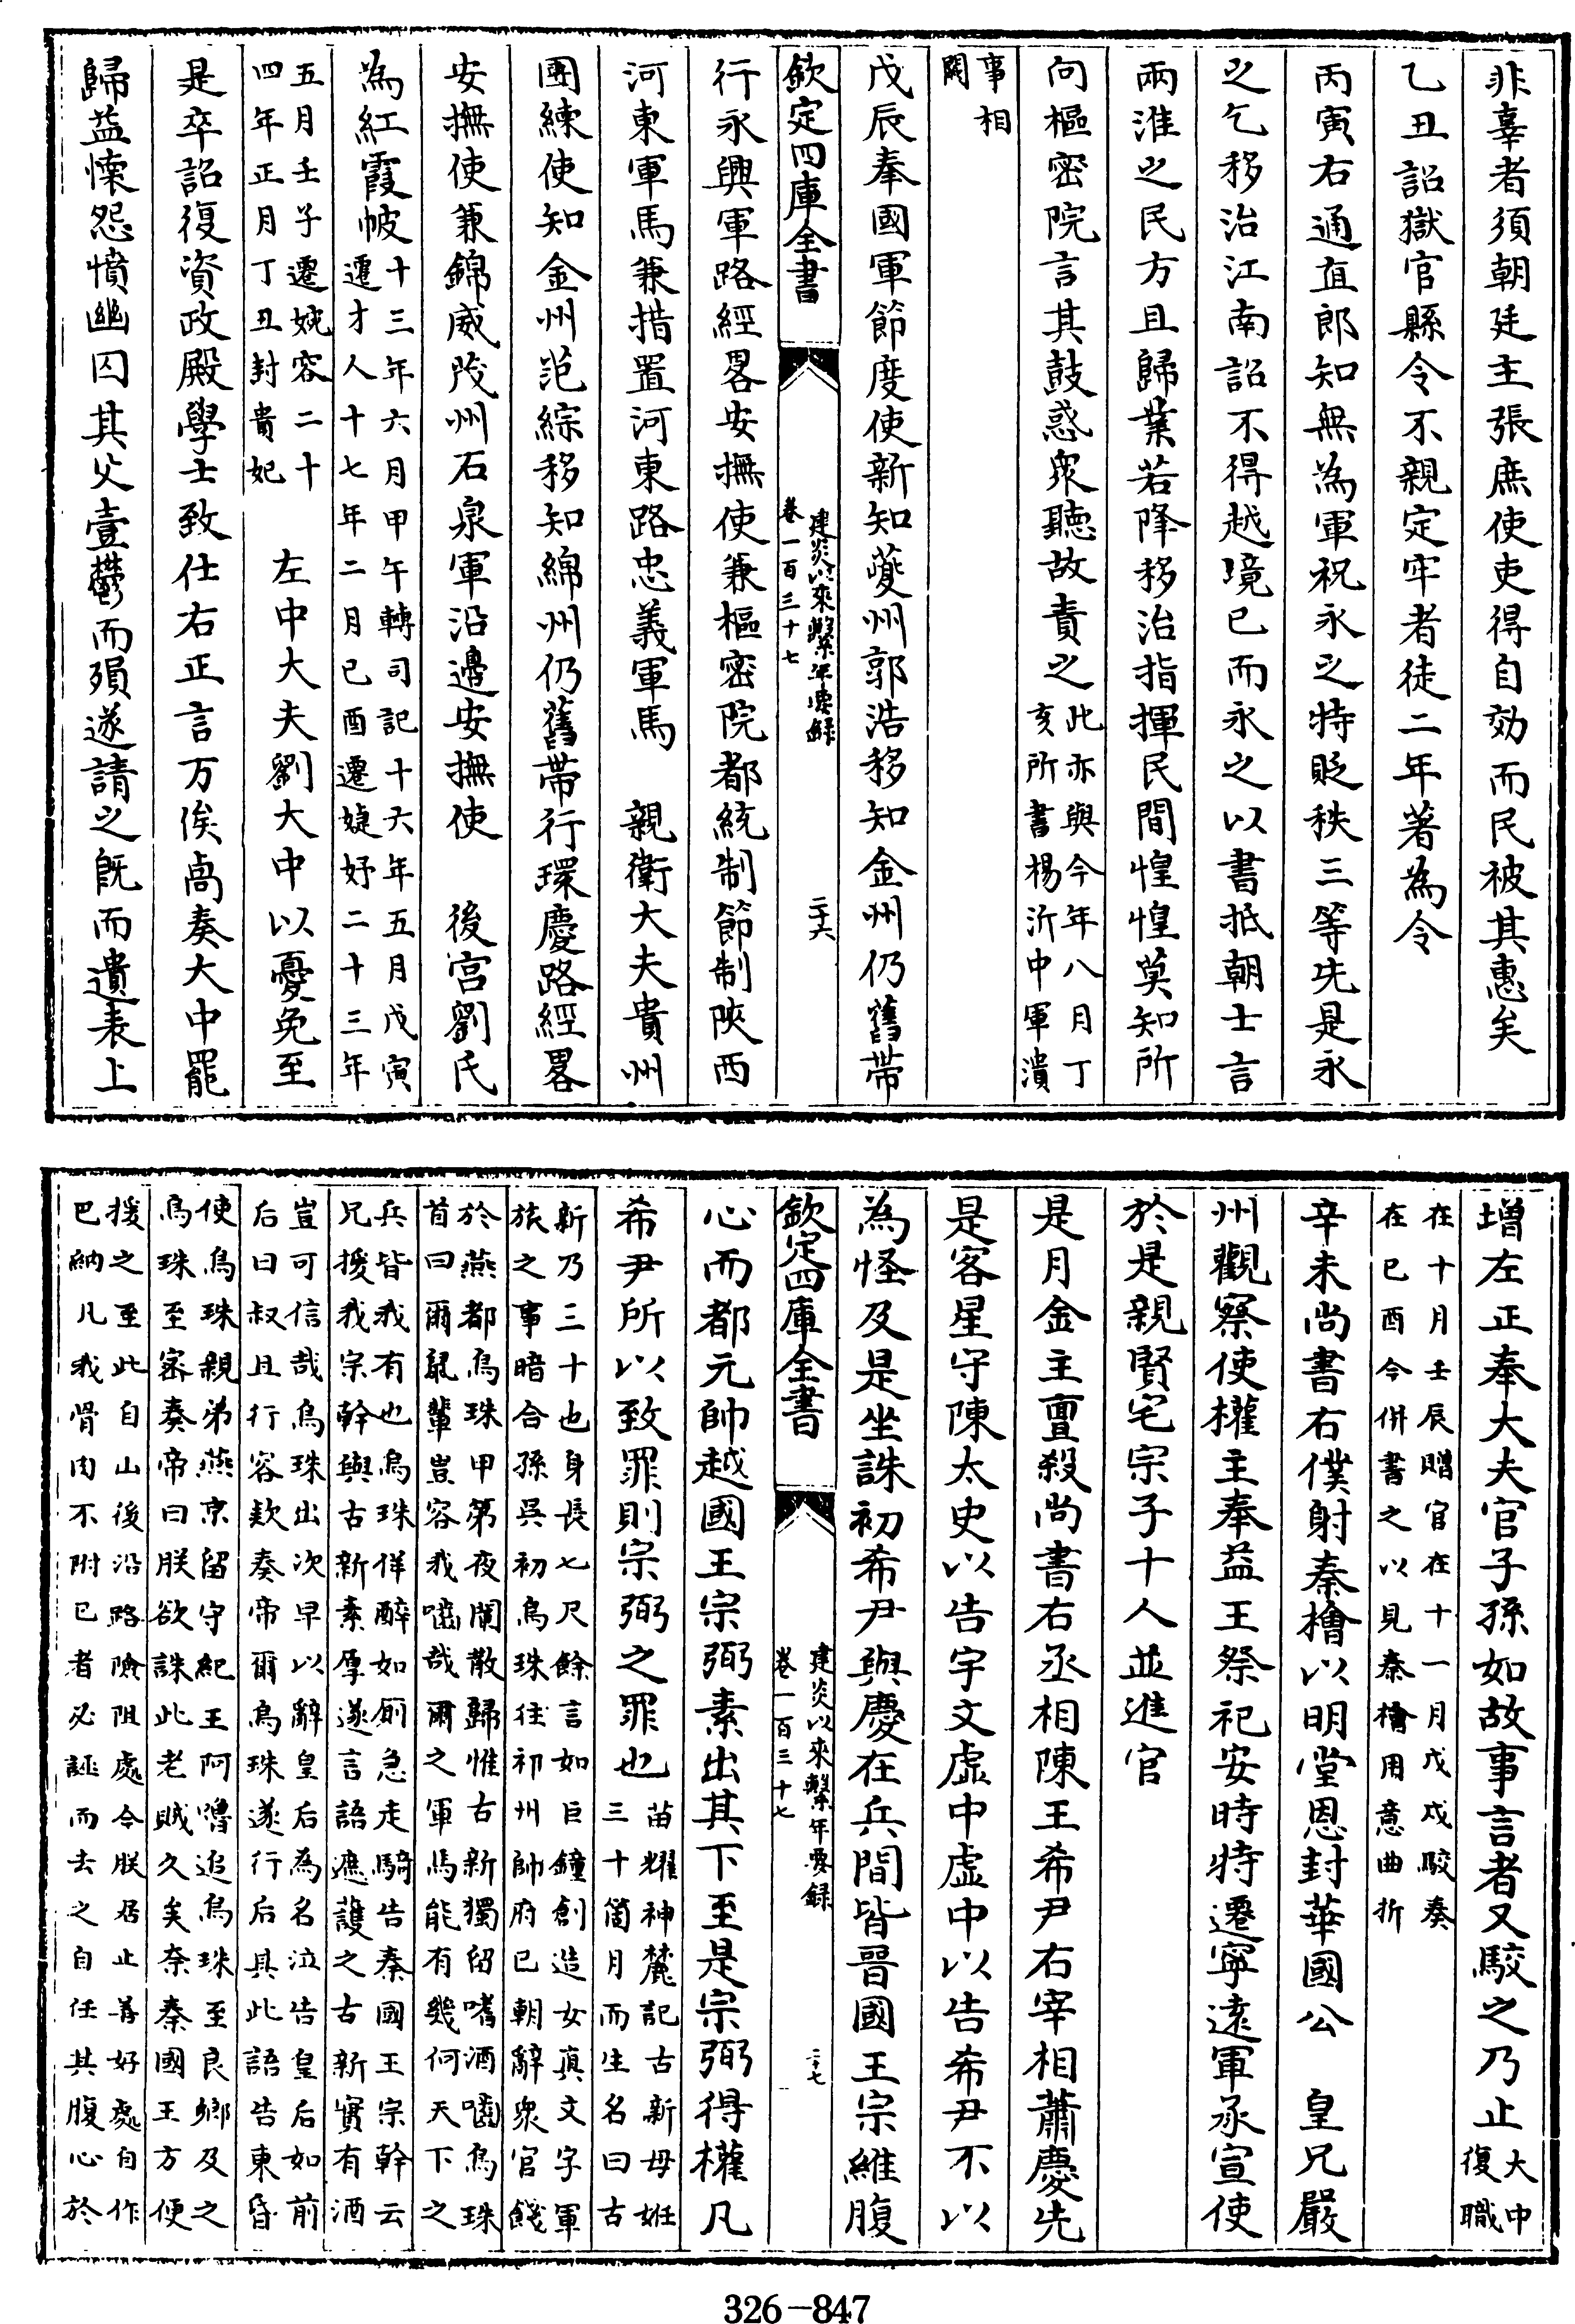 非辜者須朝廷主張庶使吏得自効而民被其惠矣
乙丑詔獄官縣令不親定牢者徒二年著為令
丙寅右通直郎知無為軍祝永之特貶秩三等先是永
之乞移治江南詔不得越境已而永之以書抵朝士言
兩淮之民方且歸業若降移治指揮民間惶惶莫知所
向樞密院言其鼓惑衆聽故責之
此亦與今年八月丁
亥所書楊沂中軍潰
事相
關
戊辰奉國軍節度使新知䕫州郭浩移知金州仍舊帶
欽定四庫全書
建炎以來繫年要録
卷一百三十七
二十六
行永興軍路經畧安撫使兼樞密院都統制節制陜西
河東軍馬兼措置河東路忠義軍馬　親衛大夫貴州
團練使知金州范綜移知綿州仍舊帶行環慶路經畧
安撫使兼錦威茂州石泉軍沿邊安撫使　後宮劉氏
為紅霞帔
十三年六月甲午轉司記十六年五月戊寅
遷才人十七年二月己酉遷婕妤二十三年
五月壬子遷婉容二十
四年正月丁丑封貴妃
左中大夫劉大中以憂免至
是卒詔復資政殿學士致仕右正言万俟卨奏大中罷
歸益懷怨憤幽囚其父壹鬱而殞遂請之既而遺表上
增左正奉大夫官子孫如故事言者又駮之乃止
大中
復職
在十月壬辰贈官在十一月戊戌駮奏
在己酉今併書之以見秦檜用意曲折
辛未尚書右僕射秦檜以明堂恩封華國公　皇兄嚴
州觀察使權主奉益王祭祀安時特遷寧遠軍承宣使
於是親賢宅宗子十人並進官
是月金主亶殺尚書右丞相陳王希尹右宰相蕭慶先
是客星守陳太史以告宇文虛中虛中以告希尹不以
為怪及是坐誅初希尹與慶在兵間皆晉國王宗維腹
欽定四庫全書
建炎以來繫年要録
卷一百三十七
二十七
心而都元帥越國王宗弼素出其下至是宗弼得權凡
希尹所以致罪則宗弼之罪也
苗耀神麓記古新母姙
三十箇月而生名曰古
新乃三十也身長七尺餘言如巨鐘創造女真文字軍
旅之事暗合孫吳初烏珠往祁州帥府已朝辭衆官餞
於燕都烏珠甲第夜闌散歸惟古新獨留嗜酒嚙烏珠
首曰爾鼠輩豈容我嚙哉爾之軍馬能有幾何天下之
兵皆我有也烏珠佯醉如厠急走騎告秦國王宗幹云
兄援我宗幹與古新素厚遂言語遮護之古新實有酒
豈可信哉烏珠出次早以辭皇后為名泣告皇后如前
后曰叔且行容欵奏帝爾烏珠遂行后具此語告東昏
使烏珠親弟燕京留守紀王阿嚕追烏珠至良鄉及之
烏珠至密奏帝曰朕欲誅此老賊久矣奈秦國王方便
援之至此自山後沿路險阻處令朕居止善好處自作
巳納凡我骨肉不附已者必誣而去之自任其腹心於
326-847